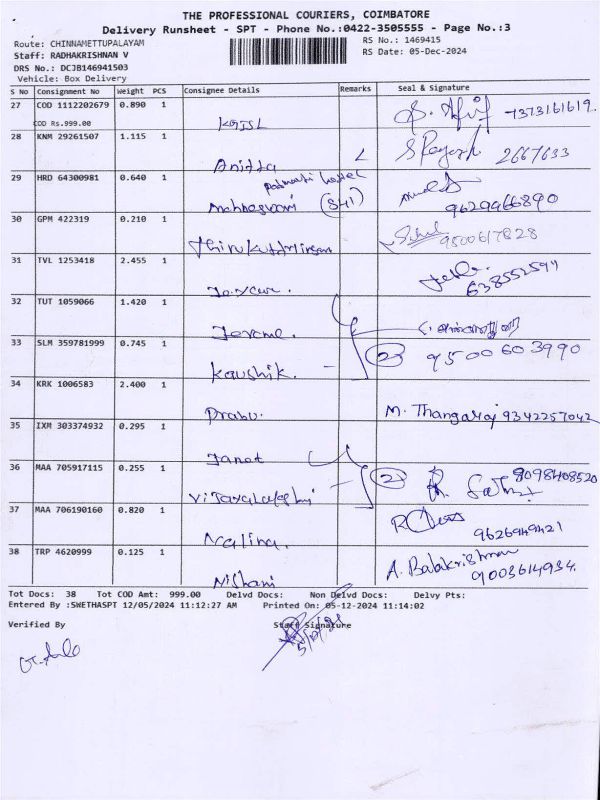 THE PROFESSIONAL COURIERS, COIMBATORE
Delivery Runsheet - SPT - Phone No.:0422-3505555 - Page No.:3
Route: CHINNAMETTUPALAYAM
RS No.: 1469415
Staff: RADHAKRISHNAN V
RS Date: 05-Dec-2024
DRS No.: DCJB146941503
Vehicle: Box Delivery
S No Consignment No Weight PCS Consignee Details Remarks Seal & Signature
27 COD 1112202679 0.890 1 7373161619.
COD Rs.999.00
28 KNM 29261507 1.115 1 Anitta 2667633
29 HRD 64300981 0.640 1 (SH1) 9629966890
30 GPM 422319 0.210 1 9500617828
31 TVL 1253418 2.455 1
32 TUT 1059066 1.420 1 Jerome.
33 SLM 359781999 0.745 1 Kaushik. - (2) 9500603990
34 KRK 1006583 2.400 1 Prabu. M. Thangaraj 9342257042
35 IXM 303374932 0.295 1 Janet
36 MAA 705917115 0.255 1 Vijayalakshmi - (2) 8098408520
37 MAA 706190160 0.820 1 Nalina. 9626949421
38 TRP 4620999 0.125 1 Nishani A. Balakrishnan 9003614934.
Tot Docs: 38 Tot COD Amt: 999.00 Delvd Docs: Non Delvd Docs: Delvy Pts:
Entered By :SWETHASPT 12/05/2024 11:12:27 AM Printed On: 05-12-2024 11:14:02
Verified By Staff Signature